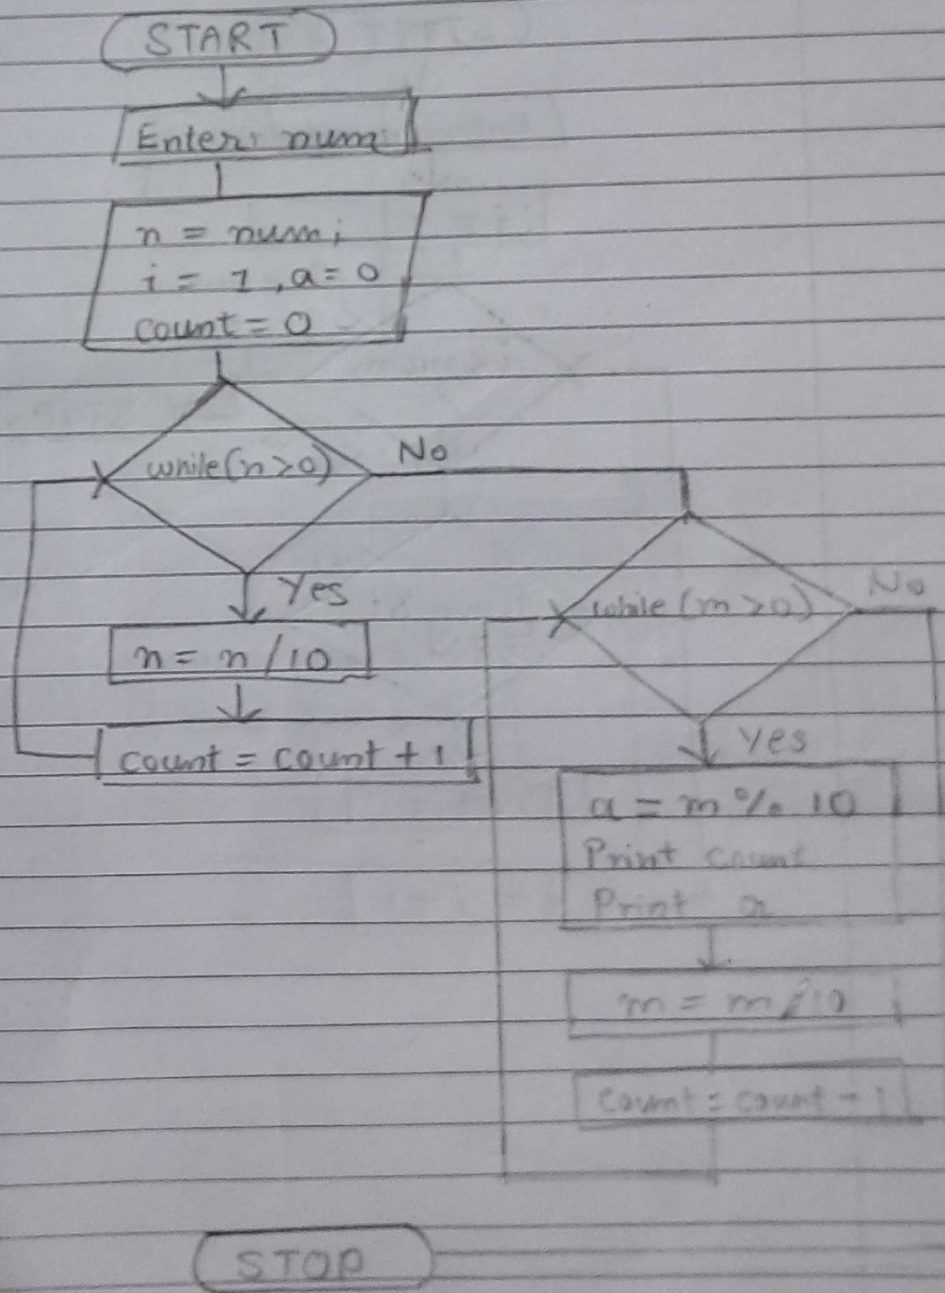 START
Enter num
n = num;
i = 1, a = 0
count = 0
while(n>0)
No
Yes
n = n/10
count = count + 1
while(m>0)
No
Yes
a = m % 10
Print count
Print a
m = m/10
count = count - 1
STOP